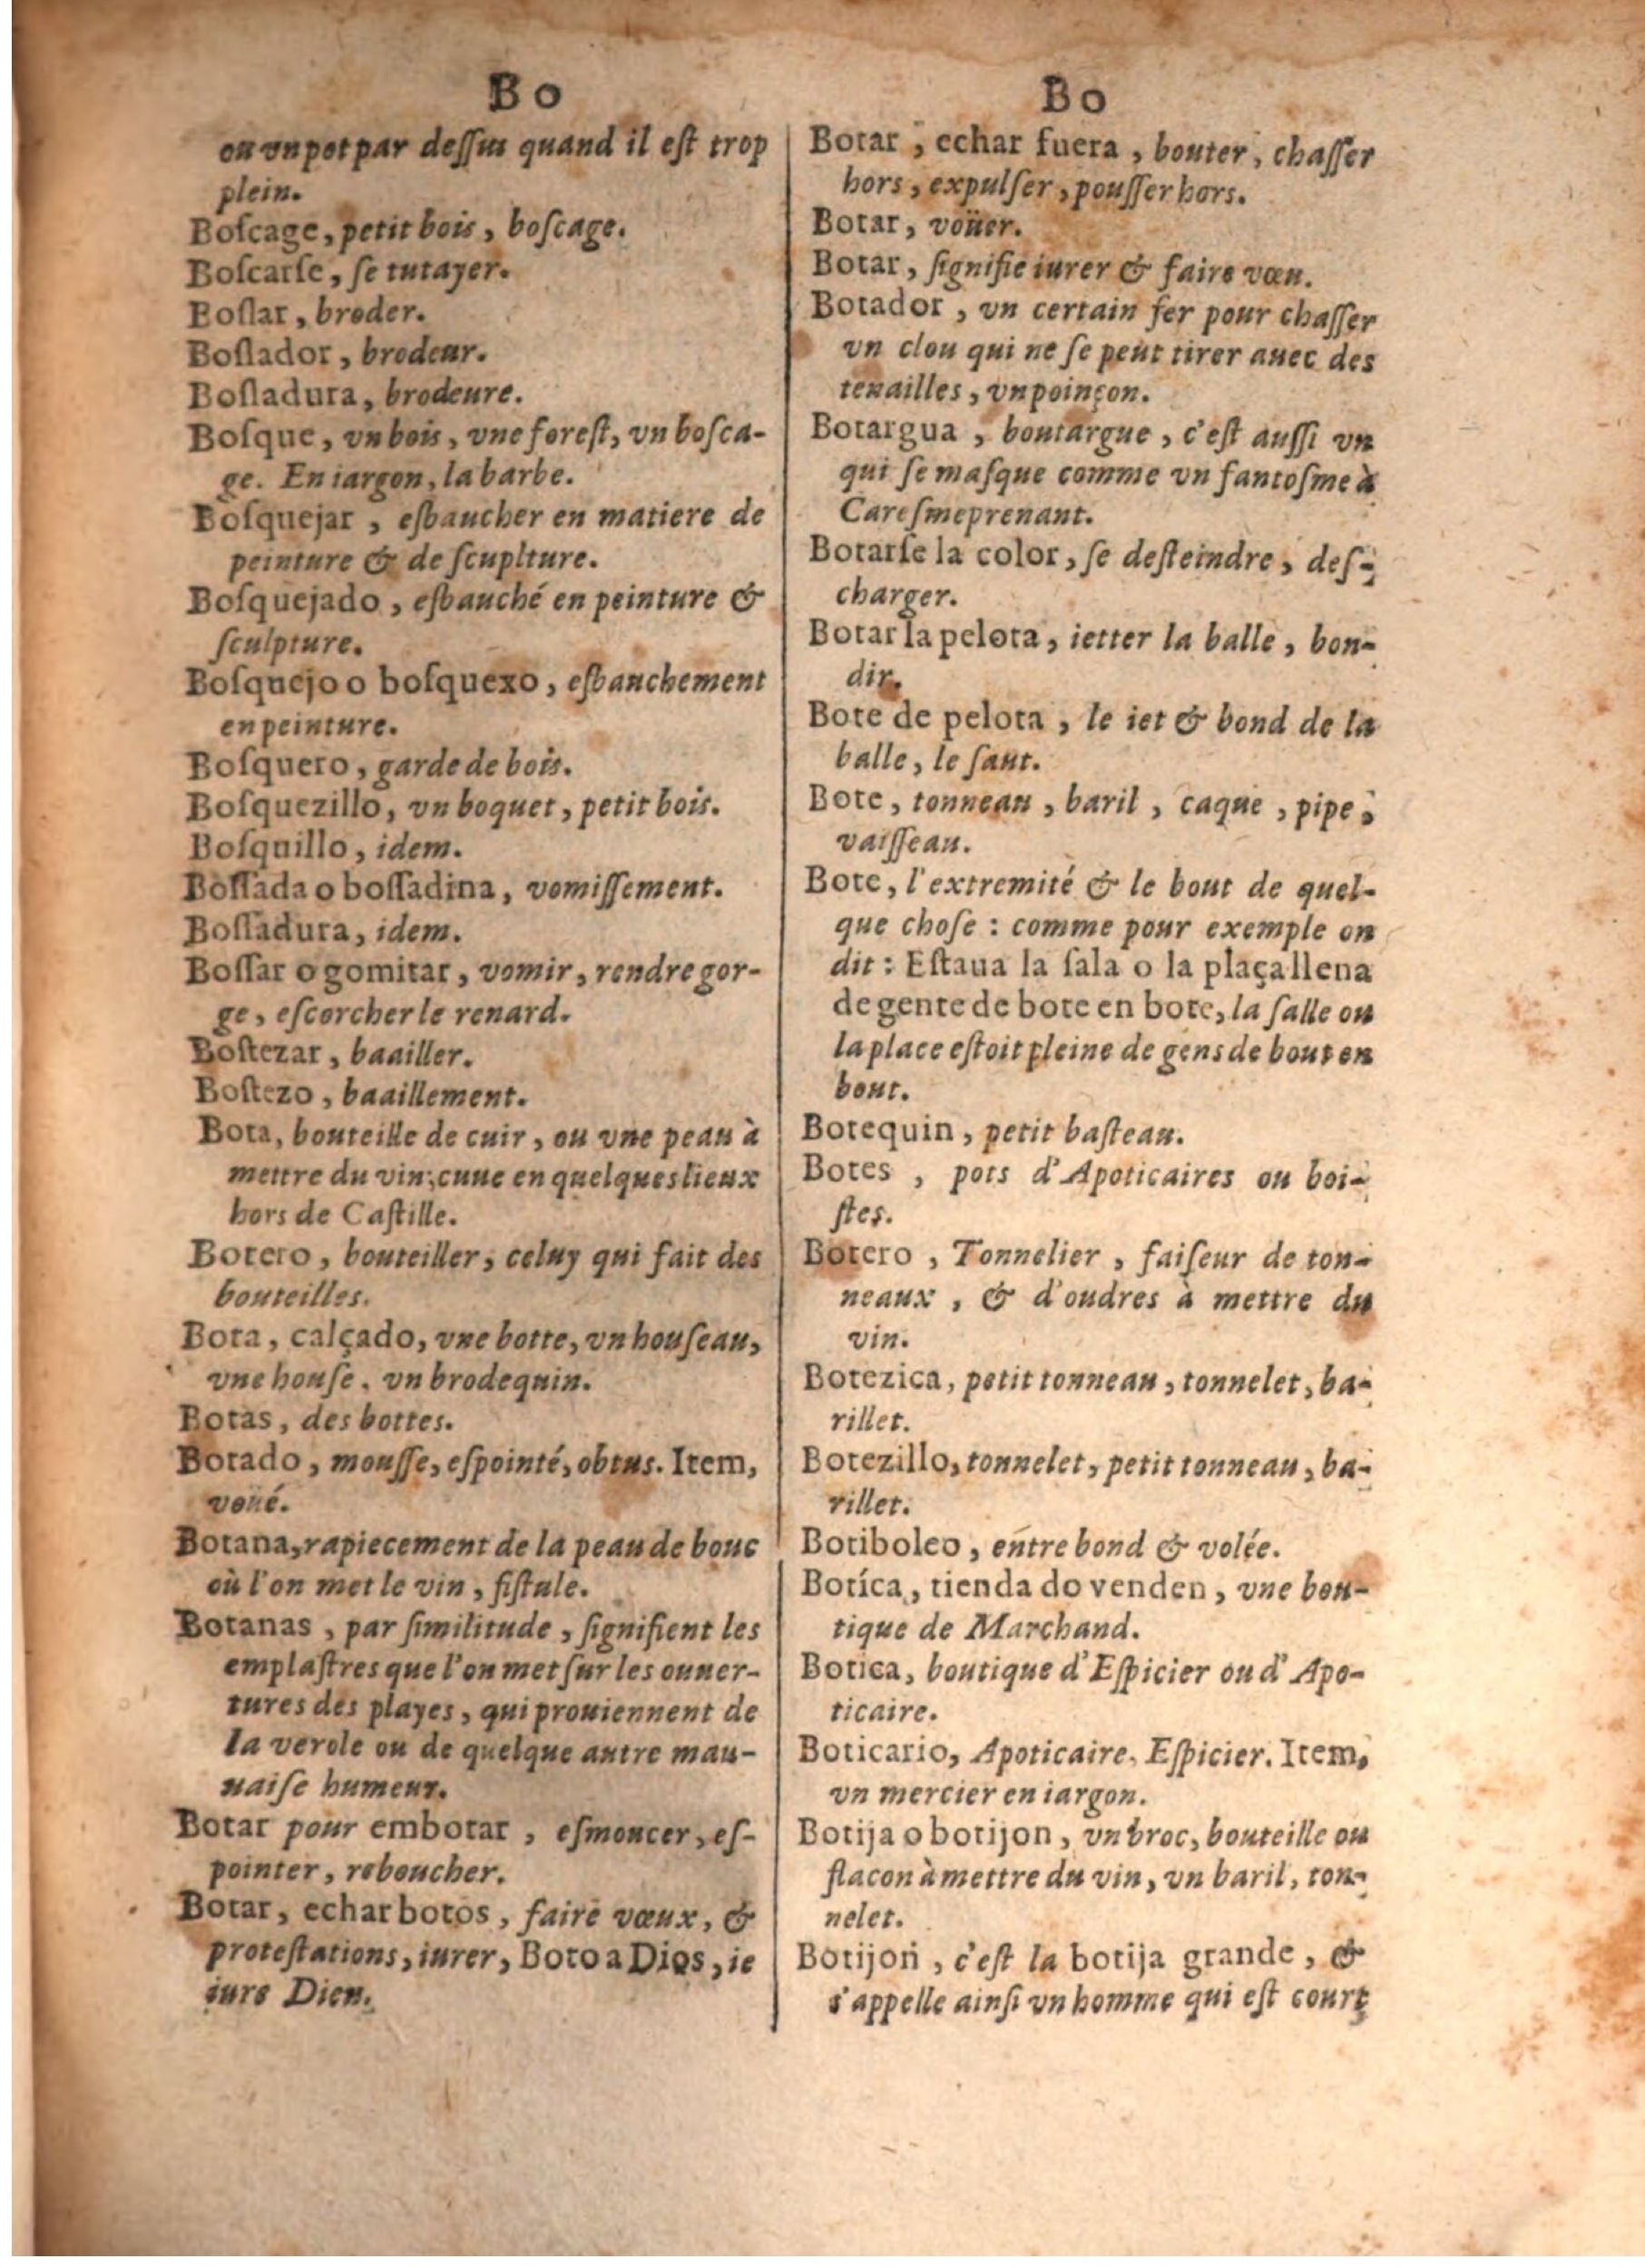 BO
ou vn pot par deſſus quand il eſt trop
plein.
Boſcage, petit bois, boſcage.
Boſcarſe, ſe tutayer.
Boſlar, broder.
Boſlador, brodeur.
Boſladura, brodeure.
Boſque, vn bois, vne foreſt, vn boſca-
ge. En iargon, la barbe.
Boſquejar, eſbaucher en matiere de
peinture & de ſcuplture.
Boſquejado, eſbauché en peinture &
ſculpture.
Boſquejo o boſquexo, eſbauchement
en peinture.
Boſquero, garde de bois.
Boſquezillo, vn boquet, petit bois.
Boſquillo, idem.
Boſſada o boſſadina, vomiſſement.
Boſſadura, idem.
Boſſar o gomitar, vomir, rendre gor-
ge, eſcorcher le renard.
Boſtezar, baailler.
Boſtezo, baaillement.
Bota, bouteille de cuir, ou vne peau à
mettre du vin; cuue en quelques lieux
hors de Caſtille.
Botero, bouteiller, celuy qui fait des
bouteilles.
Bota, calçado, vne botte, vn houſeau,
vne houſe, vn brodequin.
Botas, des bottes.
Botado, mouſſe, eſpointé, obtus. Item,
voüé.
Botana, rapiecement de la peau de bouc
où l'on met le vin, fiſtule.
Botanas, par ſimilitude, ſignifient les
emplaſtres que l'on met ſur les ouuer-
tures des playes, qui prouiennent de
la verole ou de quelque autre mau-
uaiſe humeur.
Botar pour embotar, eſmoucer, eſ-
pointer, reboucher.
Botar, echar botos, faire vœux, &
proteſtations, iurer, Boto a Dios, ie
iure Dieu.
BO
Botar, echar fuera, bouter, chaſſer
hors, expulſer, pouſſer hors.
Botar, voüer.
Botar, ſignifie iurer & faire vœu.
Botador, vn certain fer pour chaſſer
vn clou qui ne ſe peut tirer auec des
tenailles, vn poinçon.
Botargua, boutargue, c'eſt auſſi vn
qui ſe maſque comme vn fantoſme à
Careſmeprenant.
Botarſe la color, ſe deſteindre, deſ-
charger.
Botar la pelota, ietter la balle, bon-
dir.
Bote de pelota, le iet & bond de la
balle, le ſaut.
Bote, tonneau, baril, caque, pipe,
vaiſſeau.
Bote, l'extremité & le bout de quel-
que choſe : comme pour exemple on
dit : Eſtaua la ſala o la plaça llena
de gente de bote en bote, la ſalle ou
la place eſtoit pleine de gens de bout en
bout.
Botequin, petit baſteau.
Botes, pots d'Apoticaires ou boi-
ſtes.
Botero, Tonnelier, faiſeur de ton-
neaux, & d'oudres à mettre du
vin.
Botezica, petit tonneau, tonnelet, ba-
rillet.
Botezillo, tonnelet, petit tonneau, ba-
rillet.
Botiboleo, entre bond & volée.
Botíca, tienda do venden, vne bou-
tique de Marchand.
Botica, boutique d'Eſpicier ou d'Apo-
ticaire.
Boticario, Apoticaire, Eſpicier. Item,
vn mercier en iargon.
Botija o botijon, vn broc, bouteille ou
flacon à mettre du vin, vn baril, ton-
nelet.
Botijon, c'eſt la botija grande, &
s'appelle ainſi vn homme qui eſt court